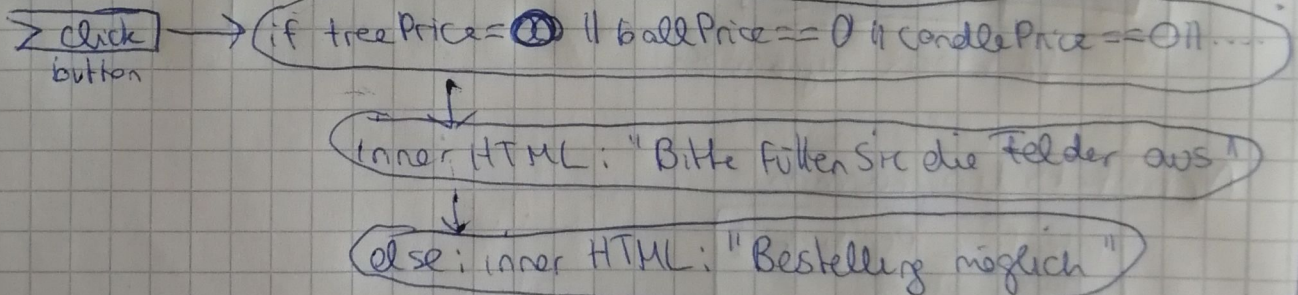 click → if treePrice=0 || ballPrice==0 || candlePrice==0 || ....
button
inner HTML: "Bitte füllen Sie die Felder aus"
else: inner HTML: "Bestellung möglich"